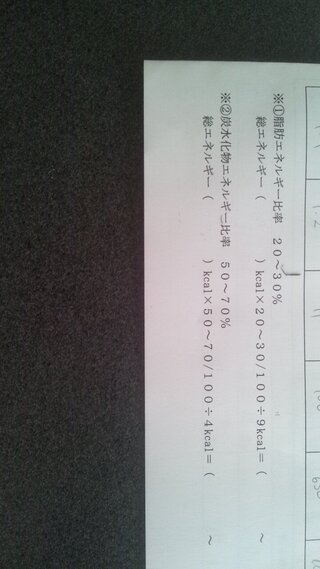 ※①脂肪エネルギー比率　20～30%
総エネルギー（　　　　）kcal×20～30/100÷9kcal=（　　　　～
※②炭水化物エネルギー比率　50～70%
総エネルギー（　　　　）kcal×50～70/100÷4kcal=（　　　　～